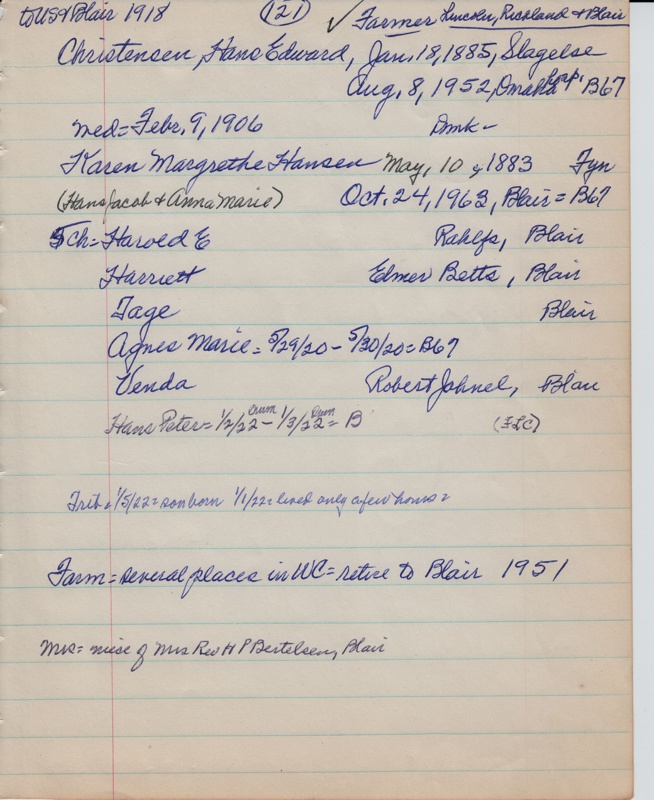 to USA & Blair 1918 (121) ✓ Farmer Lincoln, Richland & Blair
Christensen, Hans Edward, Jan. 18, 1885, Slagelse
Aug. 8, 1952, Omaha Hosp. B67
Med = Febr. 9, 1906 Dmk -
Karen Margrethe Hansen May, 10, 1883 Fyn
(Hans Jacob & Anna Marie) Oct. 24, 1963, Blair = B67
5 Ch = Harold E Rahlfs, Blair
Harriett Elmer Betts, Blair
Tage Blair
Agnes Marie = 5/29/20 - 5/30/20 = B67
Venda Robert Johnel, Blair
Hans Peter = 1/2/22 - 1/3/22 = B (FLC)
Trib = 1/5/22 = son born 1/1/22 = lived only a few hours =
Farm = several places in WC = retire to Blair 1951
Mrs = niese of Mrs Rev H P Bertelsen, Blair